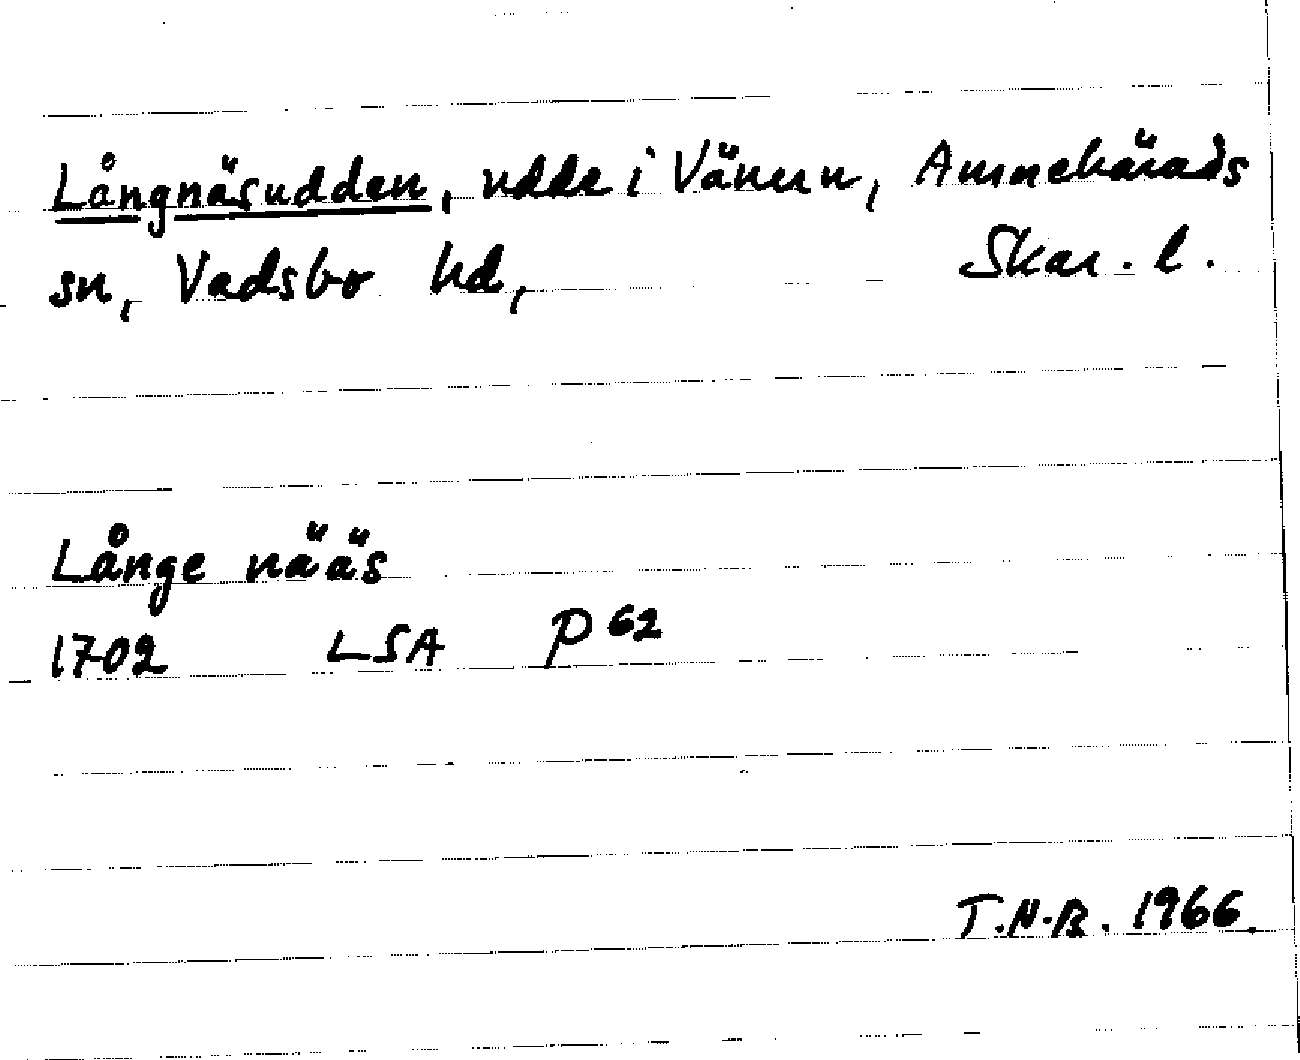 Långnäsudden, udde i Vänern, Amnehärads
sn, Vadsbo hd, Skar. l.
Långe nääs
1702 LSA P 62
T.N.B. 1966.